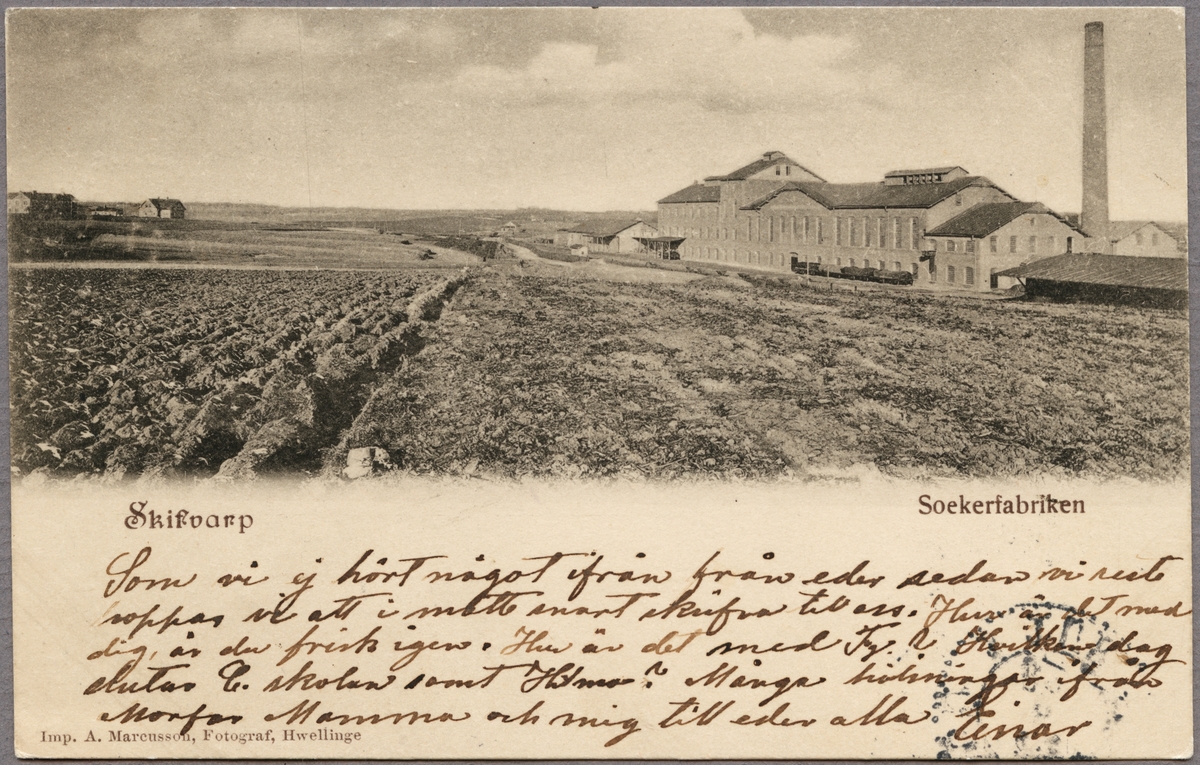 Skifvarp
Soekerfabriken
Som vi ej hört något ifrån från eder sedan vi reste
hoppas vi att i måtte snart skrifva till oss. Hur är det med
dig, är du frisk igen. Hur är det med Fy ? Hvilken dag
slutas E. skolan samt ? Många hälsningar ifrån
Morfar Mamma och mig till eder alla Einar
Imp. A. Marcusson, Fotograf, Hwellinge